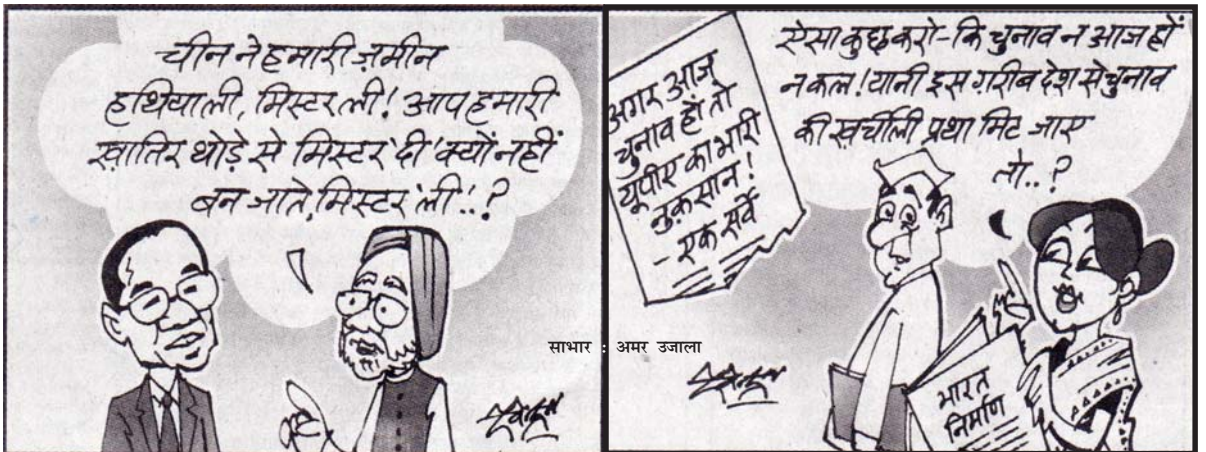 चीन ने हमारी ज़मीन
हथियाली, मिस्टर ली! आप हमारी
ख़ातिर थोड़े से मिस्टर 'दी' क्यों नहीं
बन जाते, मिस्टर 'ली'..?
अगर आज
चुनाव हों तो
यूपीए का भारी
नुक़सान!
- एक सर्वे
ऐसा कुछ करो - कि चुनाव न आज हों
न कल! यानी इस ग़रीब देश से चुनाव
की ख़र्चीली प्रथा मिट जाए
तो..?
भारत
निर्माण
साभार : अमर उजाला